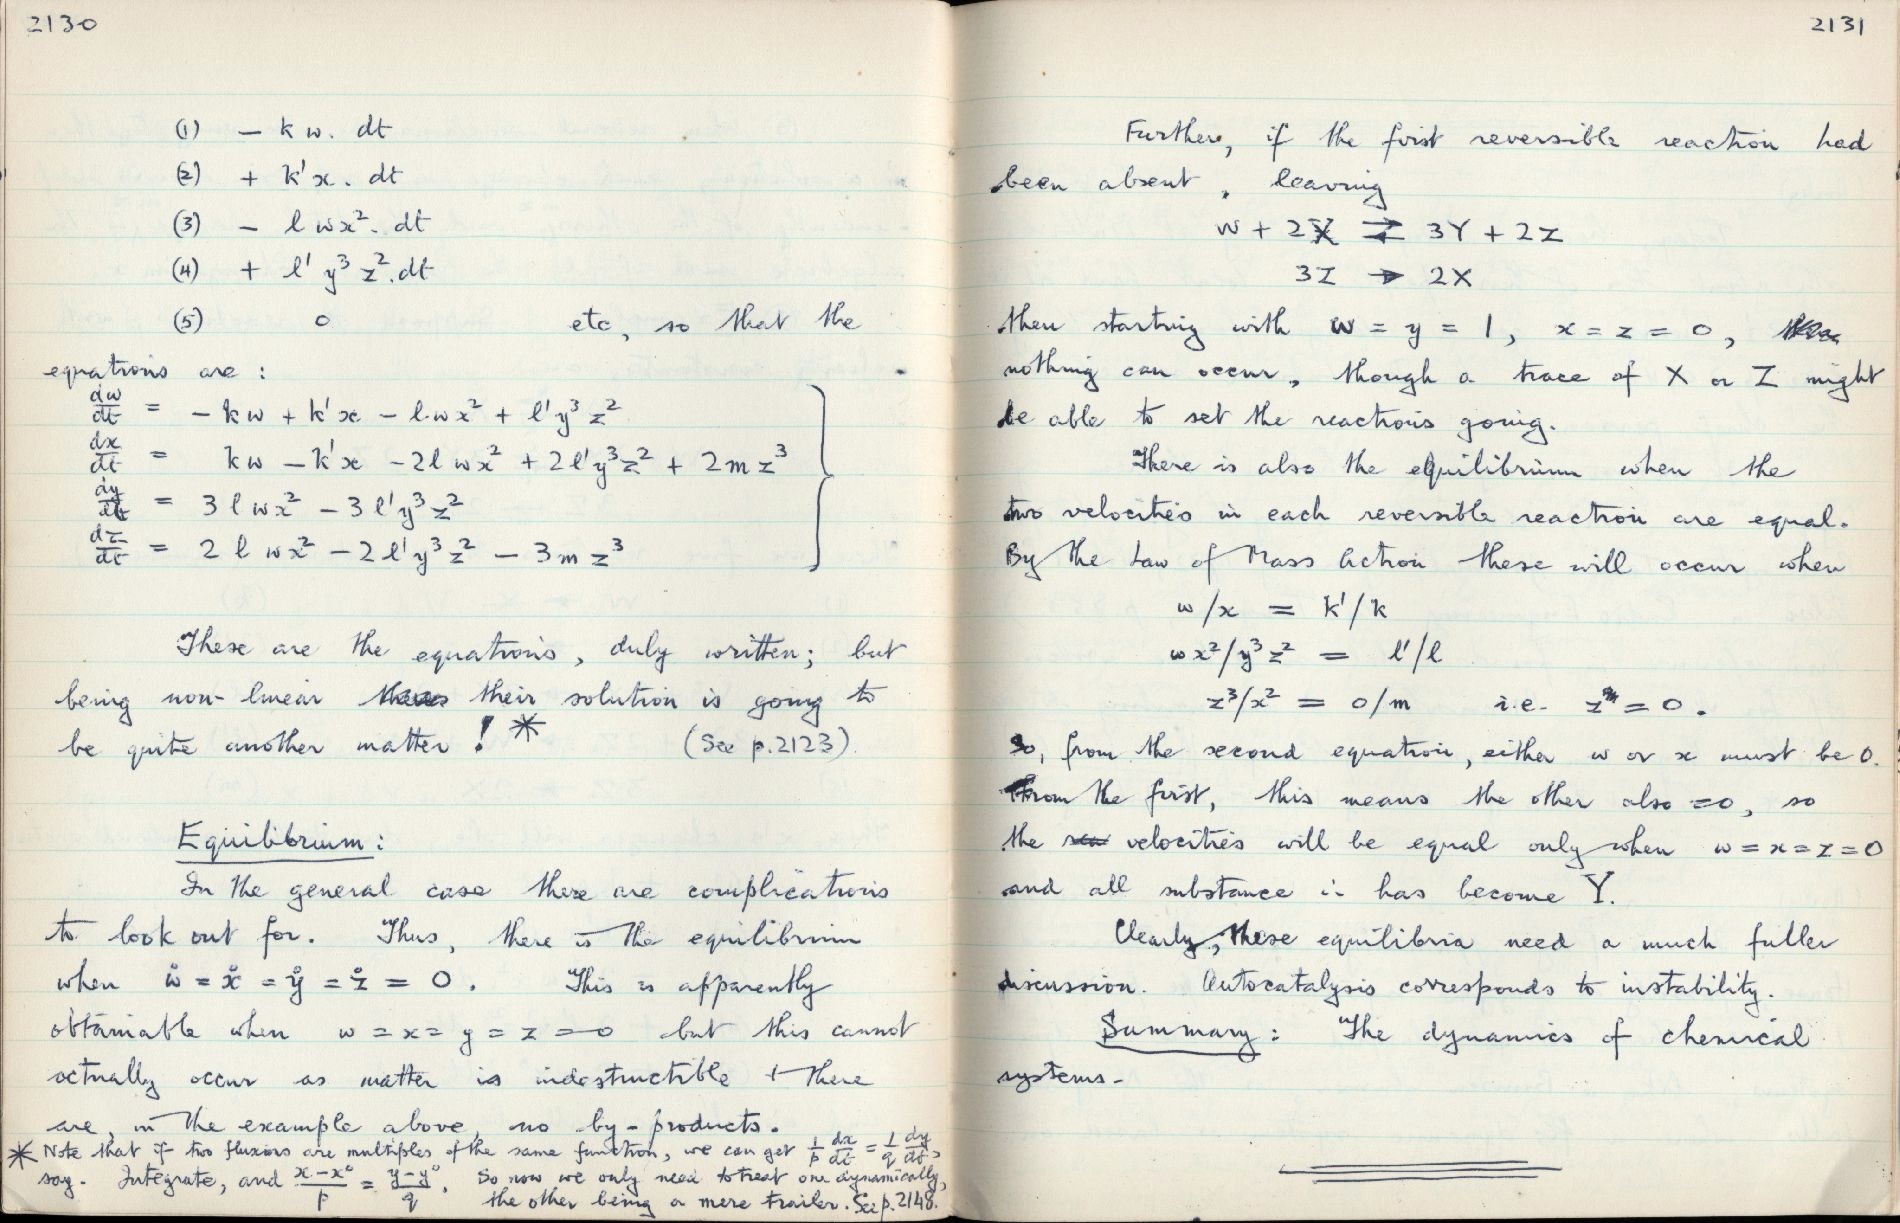 2130
(1) - k w. dt
(2) + k'x. dt
(3) - l wx². dt
(4) + l' y³ z². dt
(5) 0 etc, so that the
equations are :
dw/dt = - kw + k'x - l.wx² + l'y³z²
dx/dt = kw - k'x - 2l wx² + 2l'y³z² + 2mz³
dy/dt = 3l wx² - 3l'y³z²
dz/dt = 2l wx² - 2l'y³z² - 3mz³
These are the equations, duly written; but
being non-linear their solution is going to
be quite another matter! * (See p.2123).
Equilibrium:
In the general case there are complications
to look out for. Thus, there is the equilibrium
when ẇ = ẋ = ẏ = ż = 0. This is apparently
obtainable when w = x = y = z = 0 but this cannot
actually occur as matter is indestructible + there
are, in the example above, no by-products.
* Note that if two fluxions are multiples of the same function, we can get 1/p dx/dt = 1/q dy/dt,
say. Integrate, and x-x°/p = y-y°/q. So now we only need to treat one dynamically,
the other being a mere trailer. See p.2148.
2131
Further, if the first reversible reaction had
been absent, leaving
W + 2X ⇄ 3Y + 2Z
3Z → 2X
then starting with w = y = 1, x = z = 0,
nothing can occur, though a trace of X or Z might
be able to set the reactions going.
There is also the equilibrium when the
two velocities in each reversible reaction are equal.
By the Law of Mass Action these will occur when
w/x = k'/k
wx²/y³z² = l'/l
z³/x² = 0/m i.e. z = 0.
So, from the second equation, either w or x must be 0.
From the first, this means the other also = 0, so
the velocities will be equal only when w = x = z = 0
and all substance in has become Y.
Clearly, these equilibria need a much fuller
discussion. Autocatalysis corresponds to instability.
Summary: The dynamics of chemical
systems.